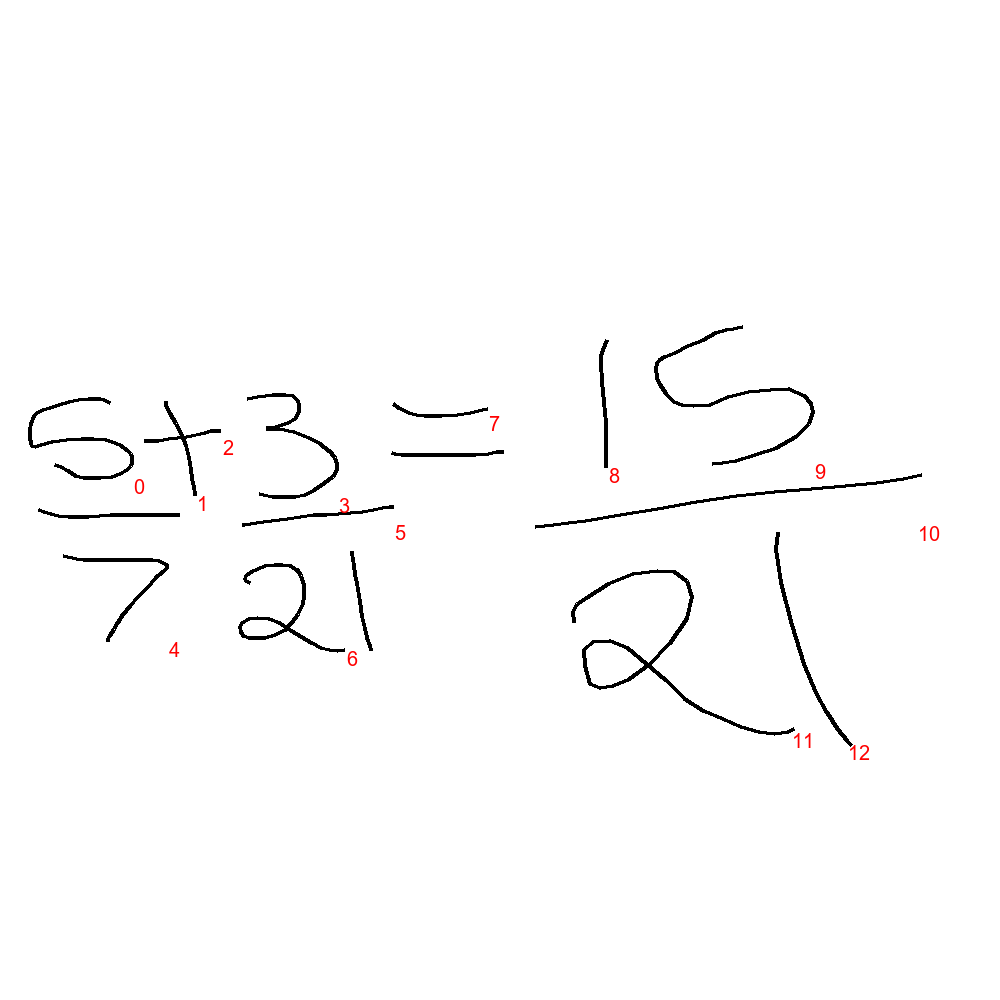 5/7 + 3/21 = 15/21
0 1 2 3 4 5 6 7 8 9 10 11 12